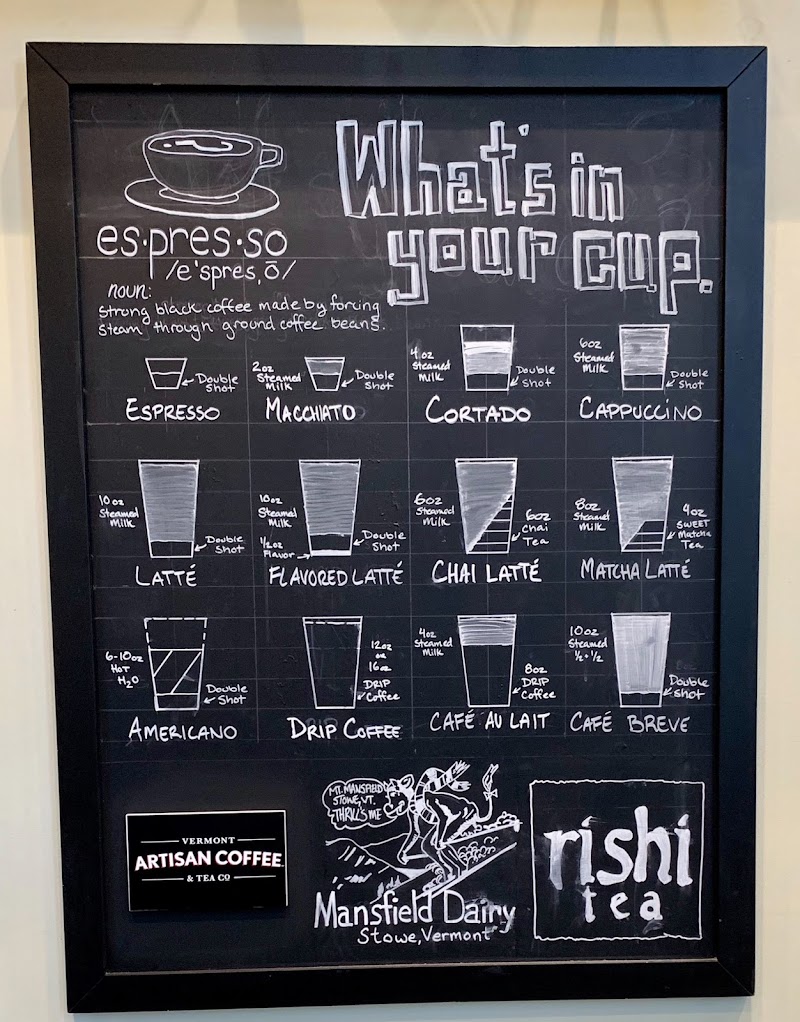 What's in
your cup.
es·pres·so
/e'spres,ō/
noun:
strong black coffee made by forcing
steam through ground coffee beans.
Double
Shot
ESPRESSO
2oz
Steamed
Milk
Double
Shot
MACCHIATO
4oz
Steamed
Milk
Double
Shot
CORTADO
6oz
Steamed
Milk
Double
Shot
CAPPUCCINO
10oz
Steamed
Milk
Double
Shot
LATTÉ
10oz
Steamed
Milk
1/2oz
Flavor
Double
Shot
FLAVORED LATTÉ
6oz
Steamed
Milk
6oz
Chai
Tea
CHAI LATTÉ
8oz
Steamed
Milk
4oz
SWEET
Matcha
Tea
MATCHA LATTÉ
6-10oz
HOT
H2O
Double
Shot
AMERICANO
12oz
or
16oz
DRIP
Coffee
DRIP COFFEE
4oz
Steamed
Milk
8oz
DRIP
Coffee
CAFÉ AU LAIT
10oz
Steamed
1/2 + 1/2
Double
Shot
CAFÉ BREVE
VERMONT
ARTISAN COFFEE
& TEA CO
MT. MANSFIELD
STOWE, VT.
THRILL'S ME
Mansfield Dairy
Stowe, Vermont
rishi
tea